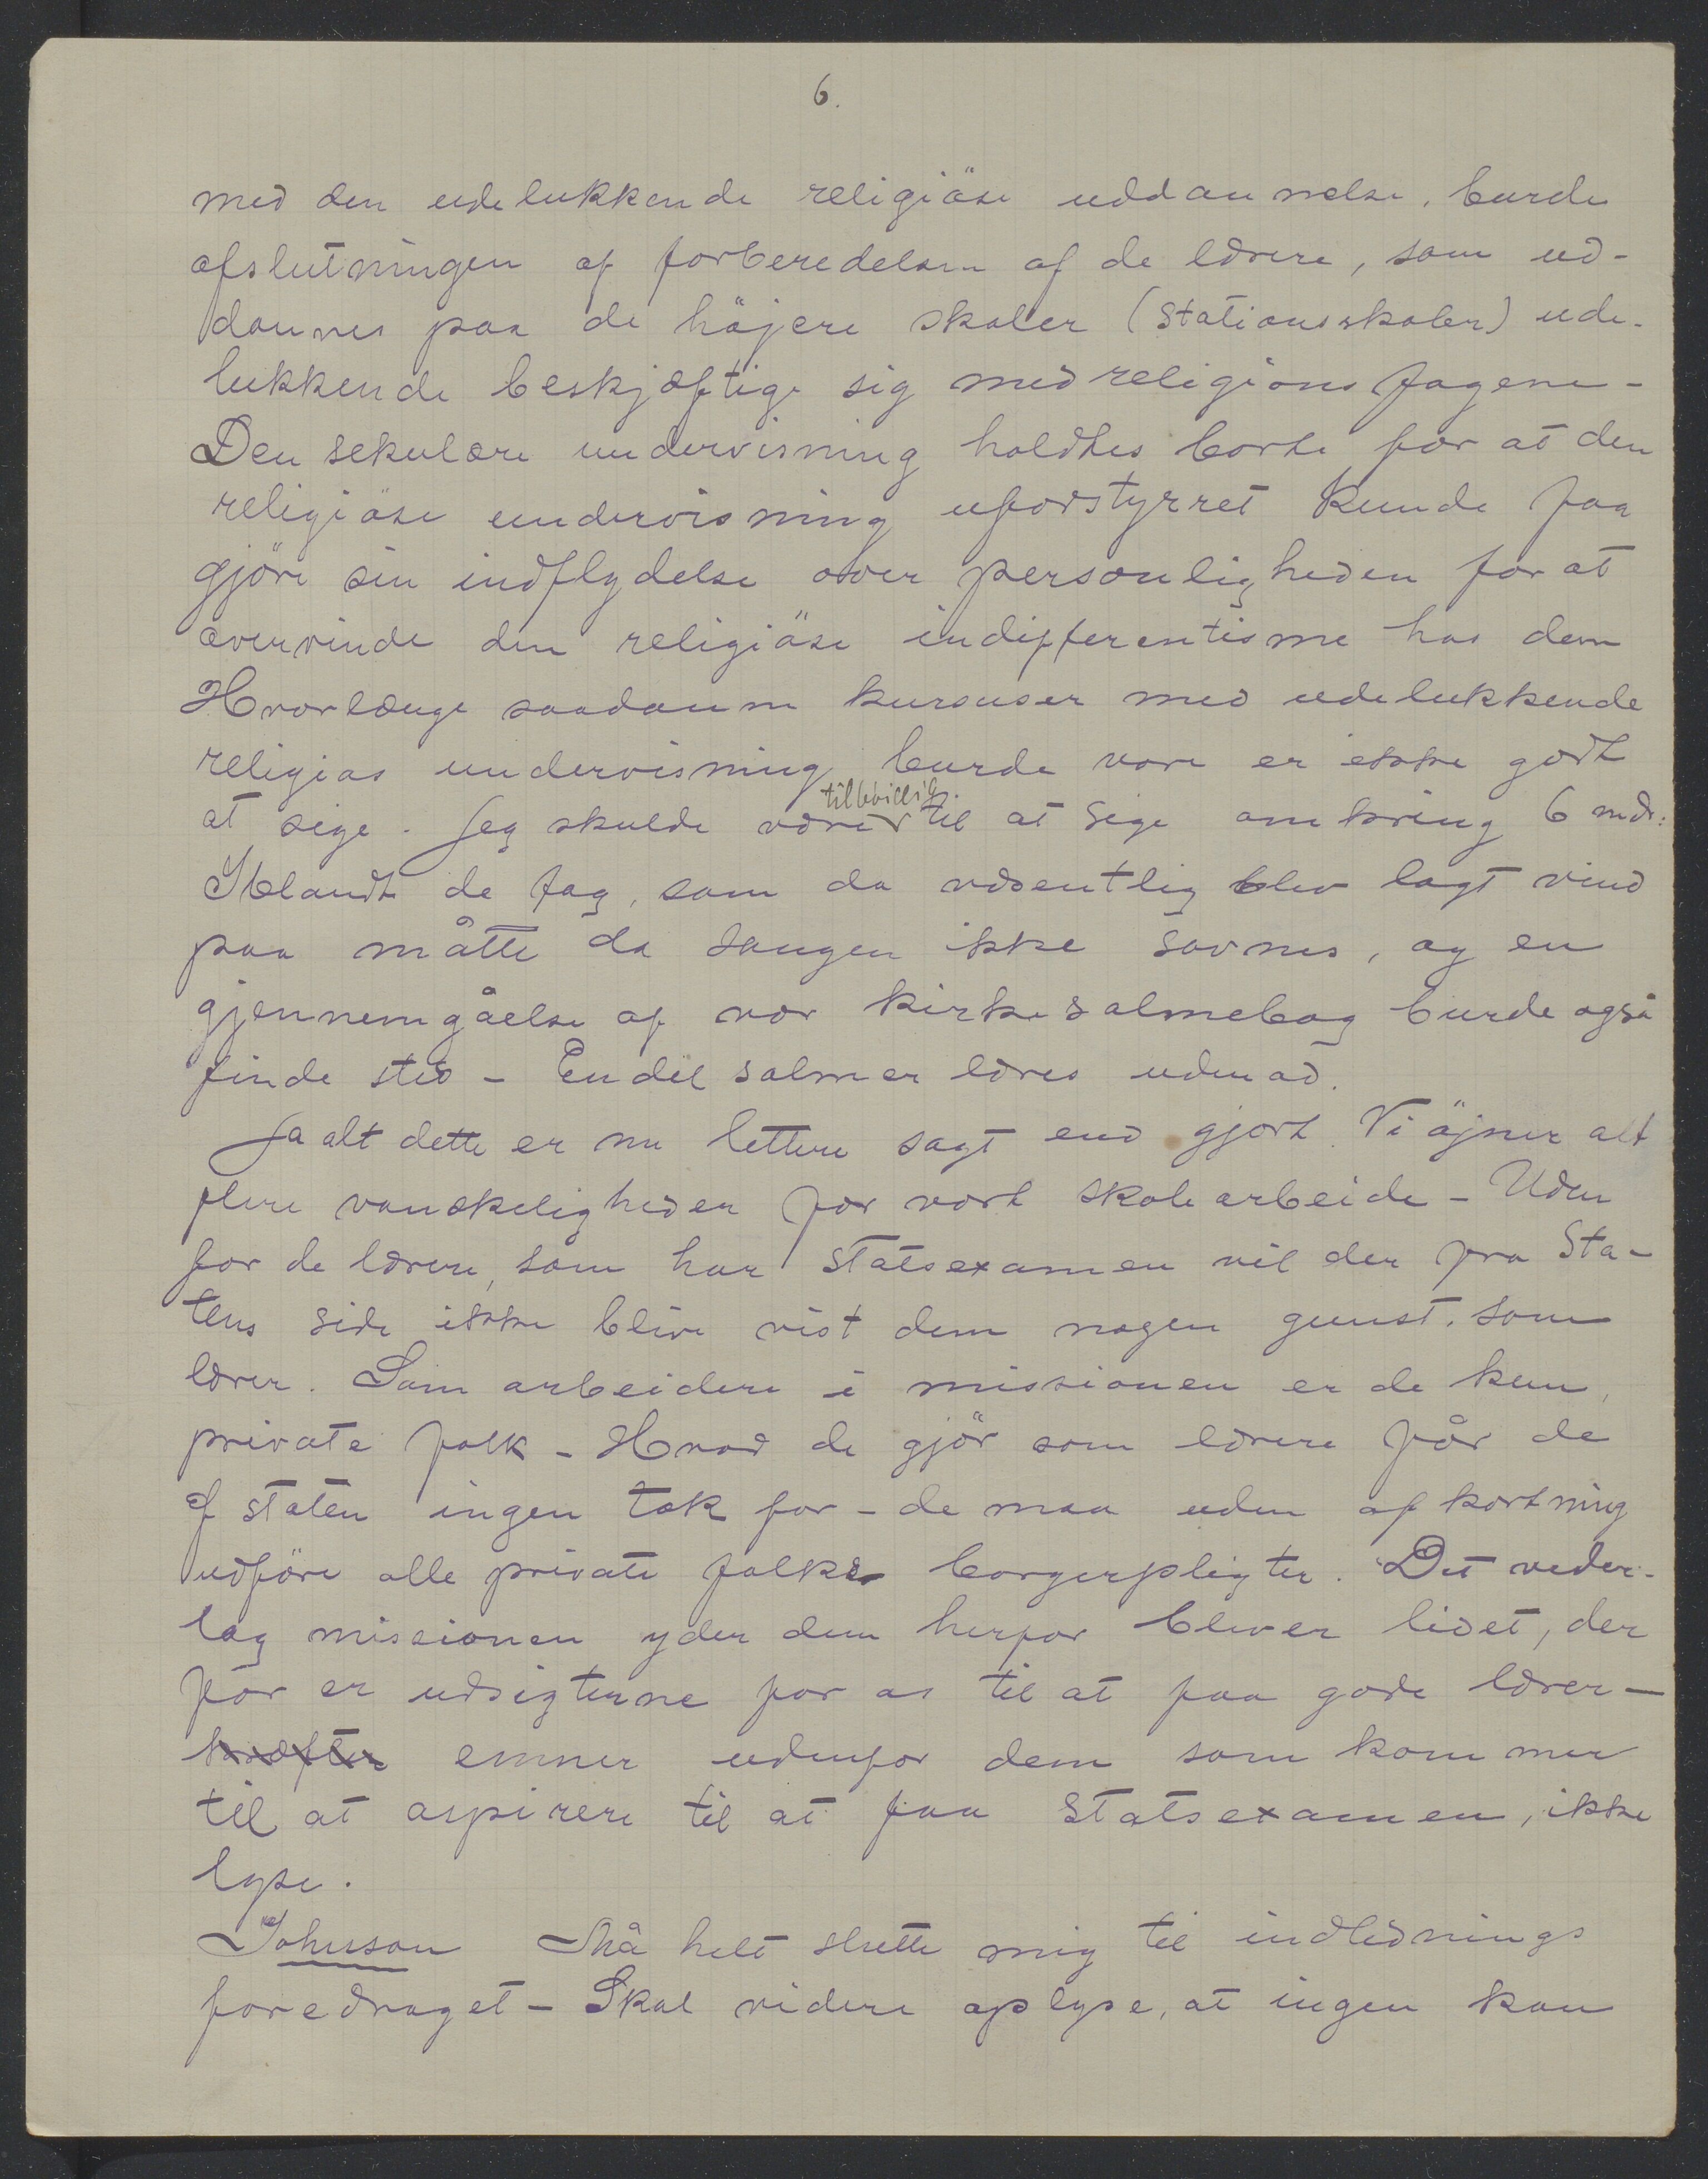 6.
med den udelukkende religiöse uddannelse, burde
afslutningen af forberedelsen af de lærere, som ud-
dannes paa de höjere skoler (Stationsskoler) ude-
lukkende beskjæftige sig med religions fagene -
Den sekulære undervisning holdtes borte for at den
religiöse undervisning uforstyrret kunde faa
gjöre sin indflydelse over personligheden for at
overvinde den religiöse indifferentisme hos dem
Hvorlænge saadanne kursuser med udelukkende
religiøs undervisning burde vare er ikke godt
tilbøielig
at sige. Jeg skulde være til at sige omkring 6 mdr.
Iblandt de fag, som da væsentlig blev lagt vind
paa måtte da sangen ikke savnes, og en
gjennemgåelse af vor kirkesalmebog burde også
finde sted - Endel salmer læres udenad.
Ja alt dette er nu lettere sagt end gjort. Vi öjner alt
flere vanskeligheder for vort skolearbeide - Uden
for de lærere, som har Statsexamen vil der fra Sta-
tens side ikke blive vist dem nogen gunst. som
lærer. Som arbeidere i missionen er de kun
private folk - Hvad de gjör som lærere får de
af staten ingen tak for - de maa uden afkortning
udföre alle private folks borgerpligter. Det veder-
lag missionen yder dem herfor bliver lidet, der
for er udsigterne for os til at faa gode lærer-
kræfter emner udenfor dem som kommer
til at aspirere til at faa Statsexamen, ikke
lyse.
Johnson Må helt slutte mig til indlednings
foredraget - Skal videre oplyse, at ingen kan